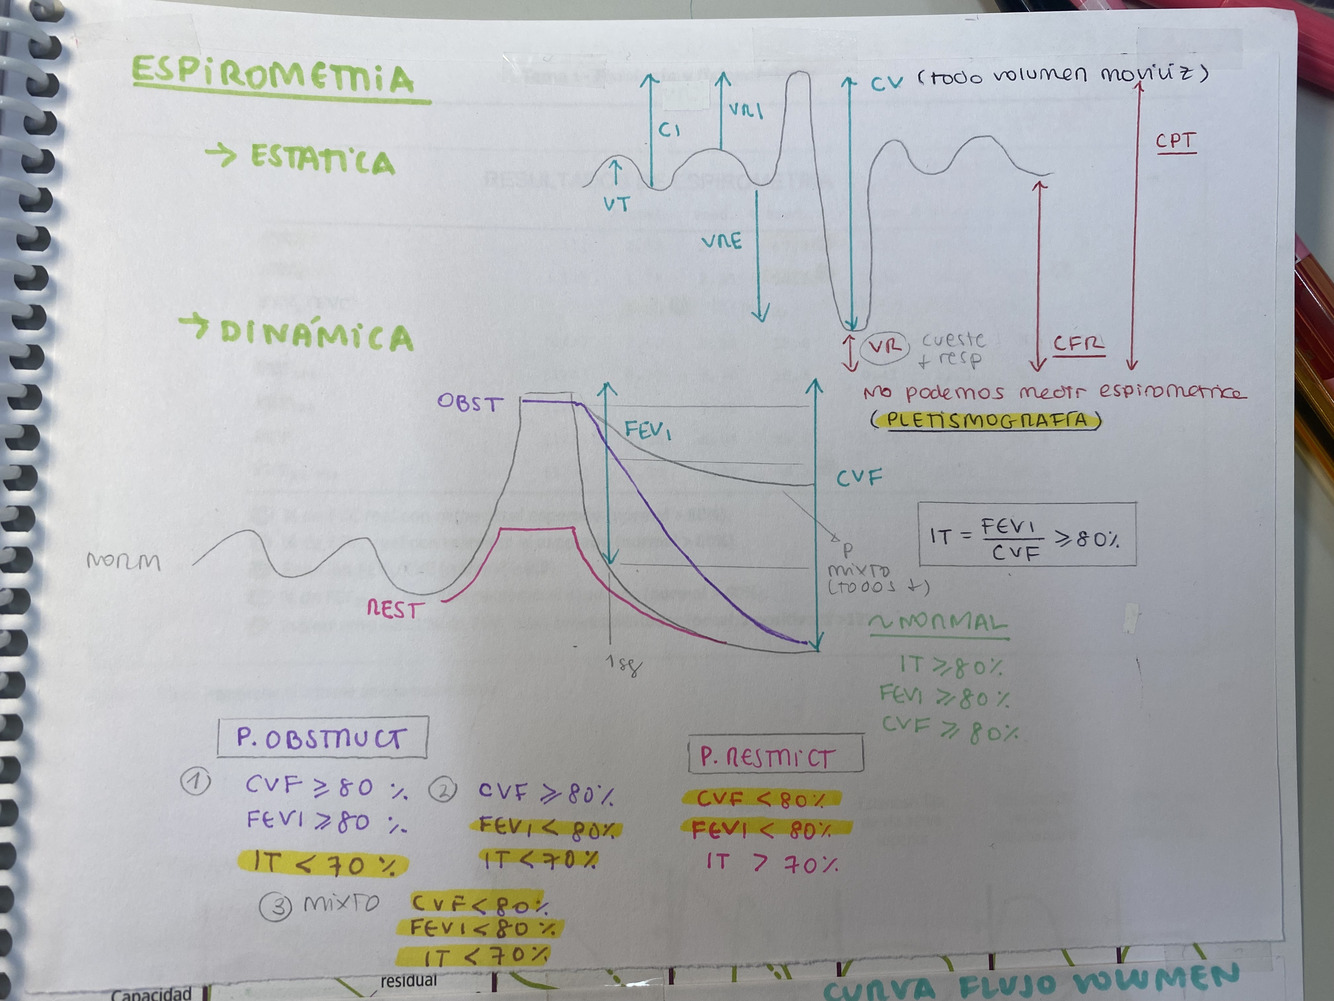 ESPIROMETRIA
→ ESTATICA
VT
CI
VRI
VRE
CV (todo volumen moviliz)
CPT
CFR
VR cueste
↓ resp
No podemos medir espirometrica
(PLETISMOGRAFÍA)
→ DINÁMICA
OBST
NORM
REST
FEV1
CVF
1sg
P
mixto
(TODOS ↓)
IT = FEV1 / CVF ≥ 80%
~ NORMAL
IT ≥ 80%
FEV1 ≥ 80%
CVF ≥ 80%
P. OBSTRUCT
① CVF ≥ 80 %
FEV1 ≥ 80 %
IT < 70 %
② CVF ≥ 80%
FEV1 < 80%
IT < 70%
③ MIXTO CVF < 80%
FEV1 < 80%
IT < 70%
P. RESTRICT
CVF < 80%
FEV1 < 80%
IT > 70%
Capacidad
residual
CURVA FLUJO VOLUMEN